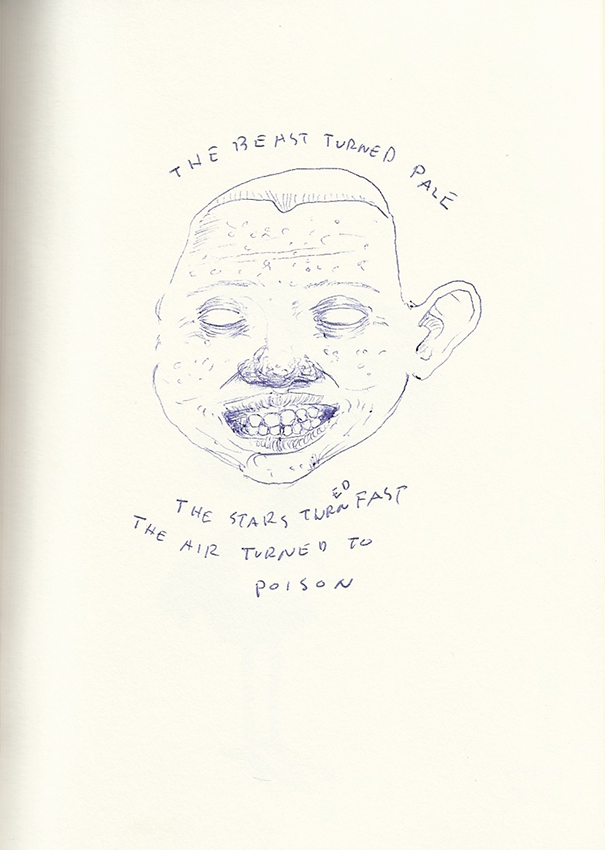 THE BEAST TURNED PALE
THE STARS TURNED FAST
THE AIR TURNED TO
POISON